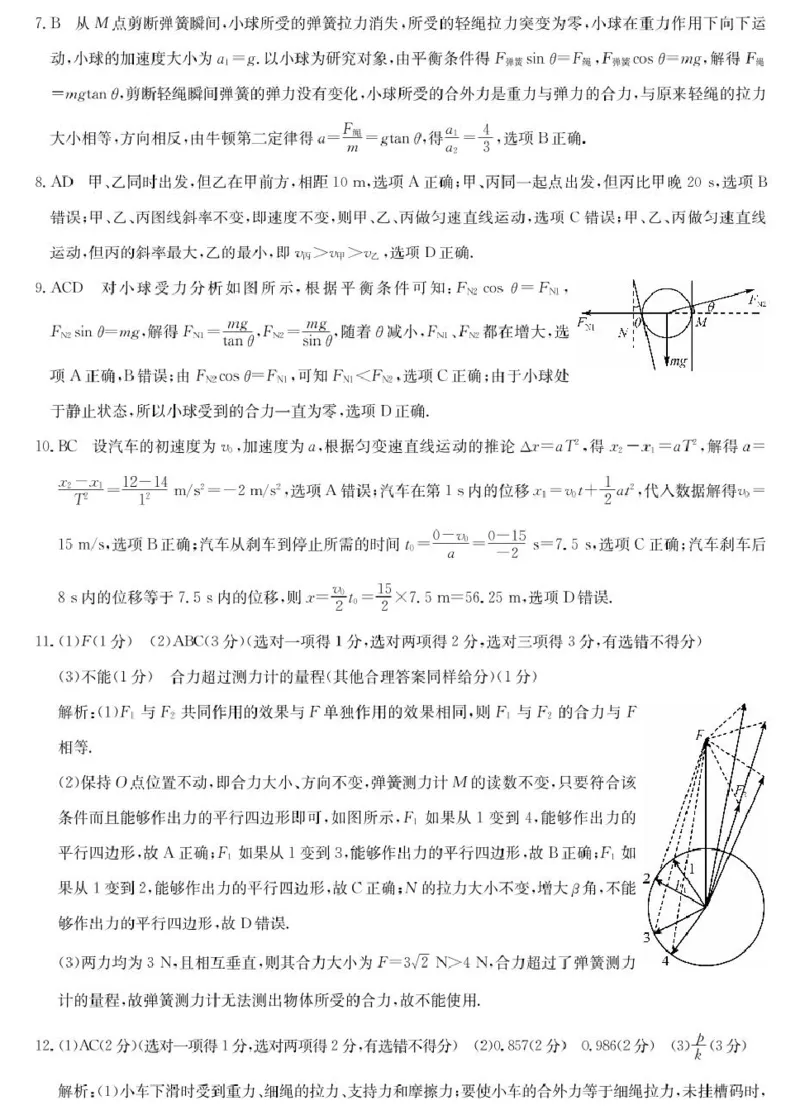 7. B　从 M 点剪断弹簧瞬间,小球所受的弹簧拉力消失,所受的轻绳拉力突变为零,小球在重力作用下向下运
动,小球的加速度大小为 a₁=g. 以小球为研究对象,由平衡条件得 F弹簧 sin θ=F绳,F弹簧 cos θ=mg,解得 F绳
=mgtan θ,剪断轻绳瞬间弹簧的弹力没有变化,小球所受的合外力是重力与弹力的合力,与原来轻绳的拉力
大小相等,方向相反,由牛顿第二定律得 a=F绳/m=gtan θ,得a₁/a₂=4/3,选项 B 正确.
8. AD　甲、乙同时出发,但乙在甲前方,相距 10 m,选项 A 正确;甲、丙同一起点出发,但丙比甲晚 20 s,选项 B
错误;甲、乙、丙图线斜率不变,即速度不变,则甲、乙、丙做匀速直线运动,选项 C 错误;甲、乙、丙做匀速直线
运动,但丙的斜率最大,乙的最小,即 v丙>v甲>v乙,选项 D 正确.
9. ACD　对小球受力分析如图所示,根据平衡条件可知:FN2 cos θ=FN1,
FN2 sin θ=mg,解得 FN1=mg/tan θ,FN2=mg/sin θ,随着 θ 减小,FN1、FN2 都在增大,选
项 A 正确,B 错误;由 FN2cos θ=FN1,可知 FN1<FN2,选项 C 正确;由于小球处
于静止状态,所以小球受到的合力一直为零,选项 D 正确.
FN1
N
θ
M
θ
FN2
mg
10. BC　设汽车的初速度为 v₀,加速度为 a,根据匀变速直线运动的推论 Δx=aT²,得 x₂-x₁=aT²,解得 a=
x₂-x₁/T²=12-14/1² m/s²=-2 m/s²,选项 A 错误;汽车在第 1 s 内的位移 x₁=v₀t+1/2at²,代入数据解得v₀=
15 m/s,选项 B 正确;汽车从刹车到停止所需的时间 t₀=0-v₀/a=0-15/-2 s=7.5 s,选项 C 正确;汽车刹车后
8 s 内的位移等于 7.5 s 内的位移,则 x=v₀/2t₀=15/2×7.5 m=56.25 m,选项 D 错误.
11. (1)F(1 分)　(2)ABC(3 分)(选对一项得 1 分,选对两项得 2 分,选对三项得 3 分,有选错不得分)
(3)不能(1 分)　合力超过测力计的量程(其他合理答案同样给分)(1 分)
解析:(1)F₁ 与 F₂ 共同作用的效果与 F 单独作用的效果相同,则 F₁ 与 F₂ 的合力与 F
相等.
(2)保持 O 点位置不动,即合力大小、方向不变,弹簧测力计 M 的读数不变,只要符合该
条件而且能够作出力的平行四边形即可,如图所示,F₁ 如果从 1 变到 4,能够作出力的
平行四边形,故 A 正确;F₁ 如果从 1 变到 3,能够作出力的平行四边形,故 B 正确;F₁ 如
果从 1 变到 2,能够作出力的平行四边形,故 C 正确;N 的拉力大小不变,增大 β 角,不能
够作出力的平行四边形,故 D 错误.
(3)两力均为 3 N,且相互垂直,则其合力大小为 F=3√2 N>4 N,合力超过了弹簧测力
计的量程,故弹簧测力计无法测出物体所受的合力,故不能使用.
F
F₂
1
2
3
4
12. (1)AC(2 分)(选对一项得 1 分,选对两项得 2 分,有选错不得分)　(2)0.857(2 分)　0.986(2 分)　(3)p/k(3 分)
解析:(1)小车下滑时受到重力、细绳的拉力、支持力和摩擦力;要使小车的合外力等于细绳拉力,未挂槽码时,